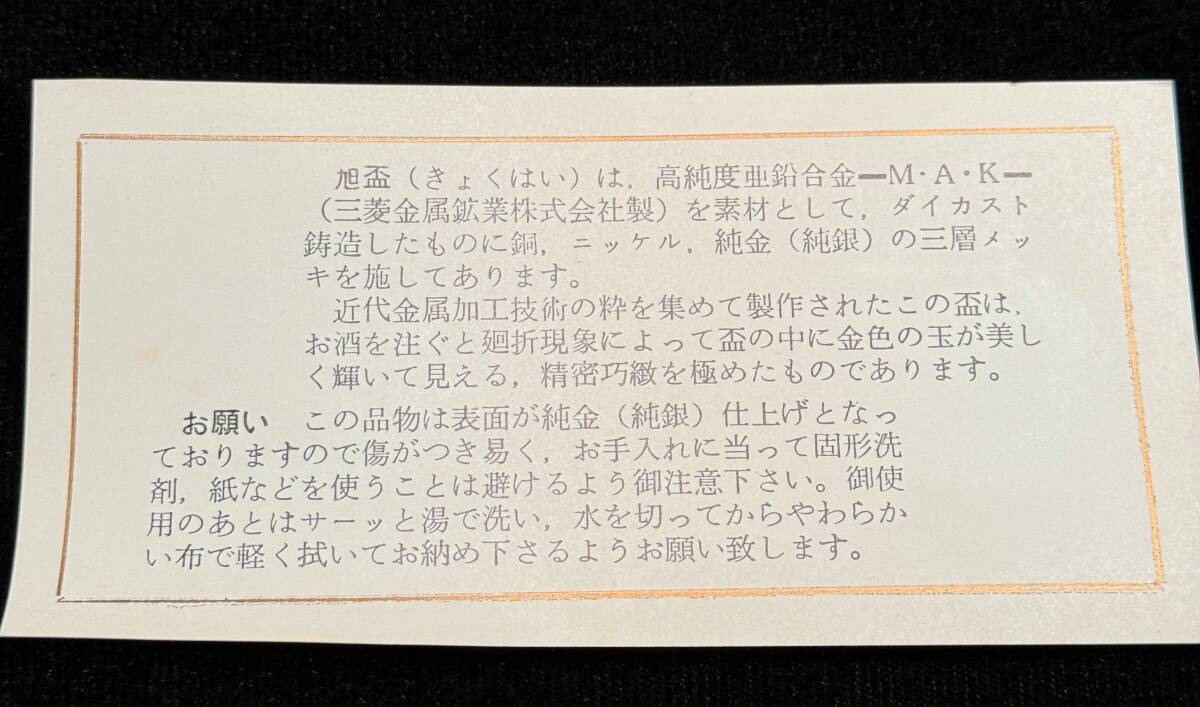 旭盃（きょくはい）は，高純度亜鉛合金━M・A・K━
（三菱金属鉱業株式会社製）を素材として，ダイカスト
鋳造したものに銅，ニッケル，純金（純銀）の三層メッ
キを施してあります。
近代金属加工技術の粋を集めて製作されたこの盃は，
お酒を注ぐと廻折現象によって盃の中に金色の玉が美し
く輝いて見える，精密巧緻を極めたものであります。
お願い　この品物は表面が純金（純銀）仕上げとなっ
ておりますので傷がつき易く，お手入れに当って固形洗
剤，紙などを使うことは避けるよう御注意下さい。御使
用のあとはサーッと湯で洗い，水を切ってからやわらか
い布で軽く拭いてお納め下さるようお願い致します。